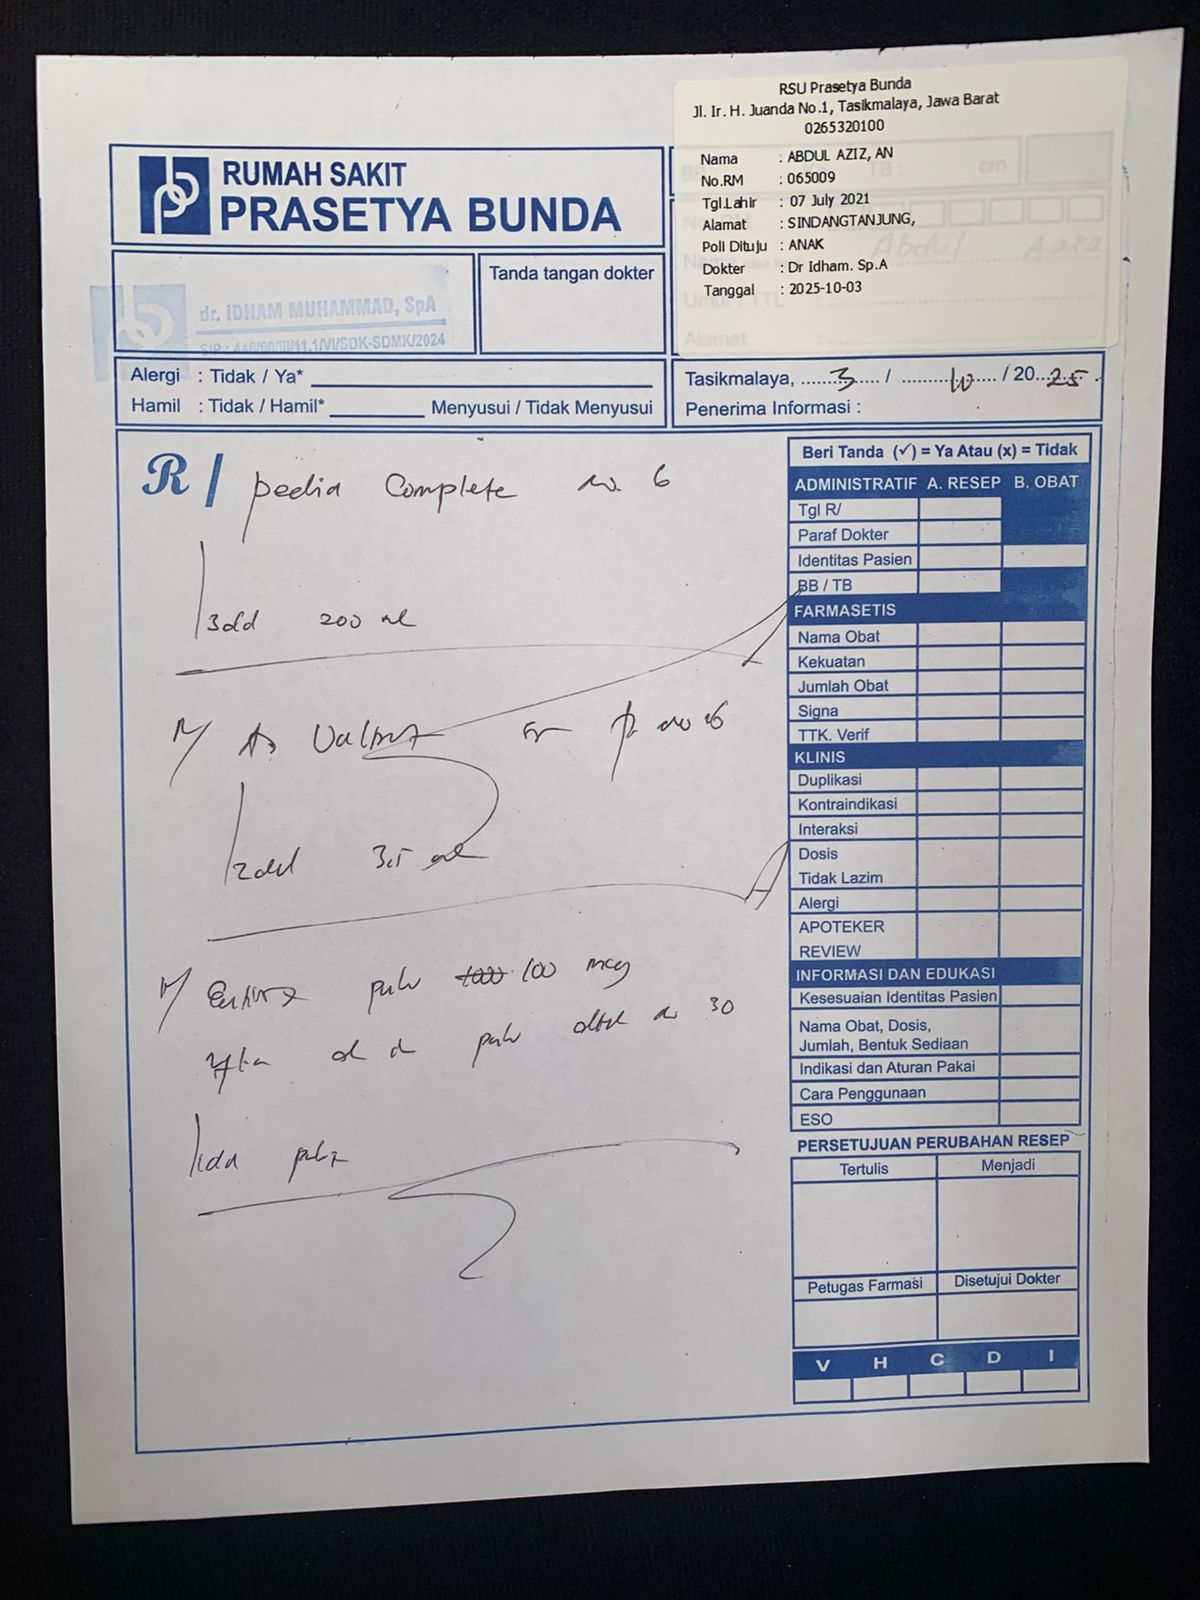 RSU Prasetya Bunda
Jl. Ir. H. Juanda No.1, Tasikmalaya, Jawa Barat
0265320100
Nama : ABDUL AZIZ, AN
No.RM : 065009
Tgl.Lahir : 07 July 2021
Alamat : SINDANGTANJUNG,
Poli Dituju : ANAK
Dokter : Dr Idham. Sp.A
Tanggal : 2025-10-03
RUMAH SAKIT
PRASETYA BUNDA
dr. IDHAM MUHAMMAD, SpA
Tanda tangan dokter
Alergi : Tidak / Ya*
Hamil : Tidak / Hamil* Menyusui / Tidak Menyusui
Tasikmalaya, 3 / 10 / 2025
Penerima Informasi :
R/ pedia Complete no. 6
3dd 200 ml
no 6
2dd 3.5 ml
1000 100 mcg
no 30
1dd
Beri Tanda (✓) = Ya Atau (x) = Tidak
ADMINISTRATIF A. RESEP B. OBAT
Tgl R/
Paraf Dokter
Identitas Pasien
BB / TB
FARMASETIS
Nama Obat
Kekuatan
Jumlah Obat
Signa
TTK. Verif
KLINIS
Duplikasi
Kontraindikasi
Interaksi
Dosis
Tidak Lazim
Alergi
APOTEKER
REVIEW
INFORMASI DAN EDUKASI
Kesesuaian Identitas Pasien
Nama Obat, Dosis,
Jumlah, Bentuk Sediaan
Indikasi dan Aturan Pakai
Cara Penggunaan
ESO
PERSETUJUAN PERUBAHAN RESEP
Tertulis Menjadi
Petugas Farmasi Disetujui Dokter
V H C D I